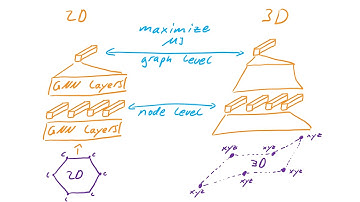 2D
maximize
MI
3D
graph level
GNN Layers
node level
GNN Layers
2D
C
C
C
C
C
C
3D
xyz
xyz
xyz
xyz
xyz
xyz